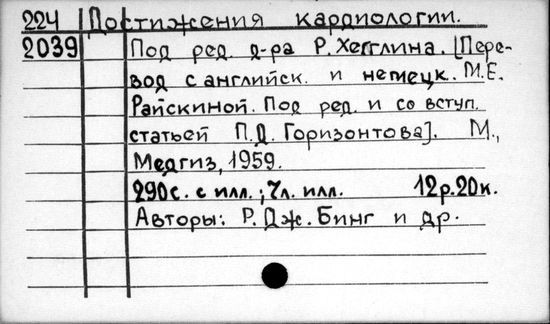 224 Достижения кардиологии.
2039 Под ред. д-ра Р. Хегглина. [Пере-
вод с английск. и немецк. М.Е.
Райскиной. Под ред. и со вступ.
статьей П.Д. Горизонтова]. М.,
Медгиз, 1959.
290с. с илл.; 7л. илл. 12р.20к.
Авторы: Р. Дж. Бинг и др.